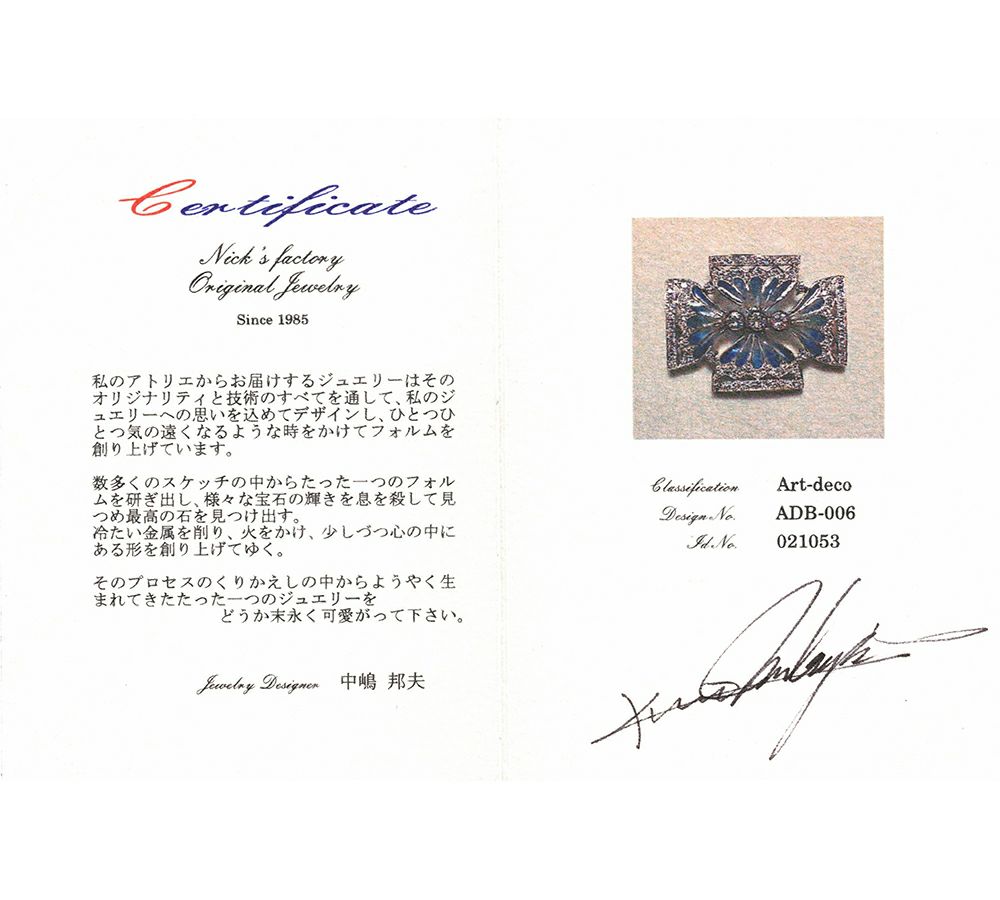 Certificate
Nick's factory
Original Jewelry
Since 1985
私のアトリエからお届けするジュエリーはその
オリジナリティと技術のすべてを通して、私のジ
ュエリーへの思いを込めてデザインし、ひとつひ
とつ気の遠くなるような時をかけてフォルムを
創り上げています。
数多くのスケッチの中からたった一つのフォル
ムを研ぎ出し、様々な宝石の輝きを息を殺して見
つめ最高の石を見つけ出す。
冷たい金属を削り、火をかけ、少しづつ心の中に
ある形を創り上げてゆく。
そのプロセスのくりかえしの中からようやく生
まれてきたたった一つのジュエリーを
どうか末永く可愛がって下さい。
Jewelry Designer 中嶋 邦夫
Classification Art-deco
Design No. ADB-006
Id No. 021053